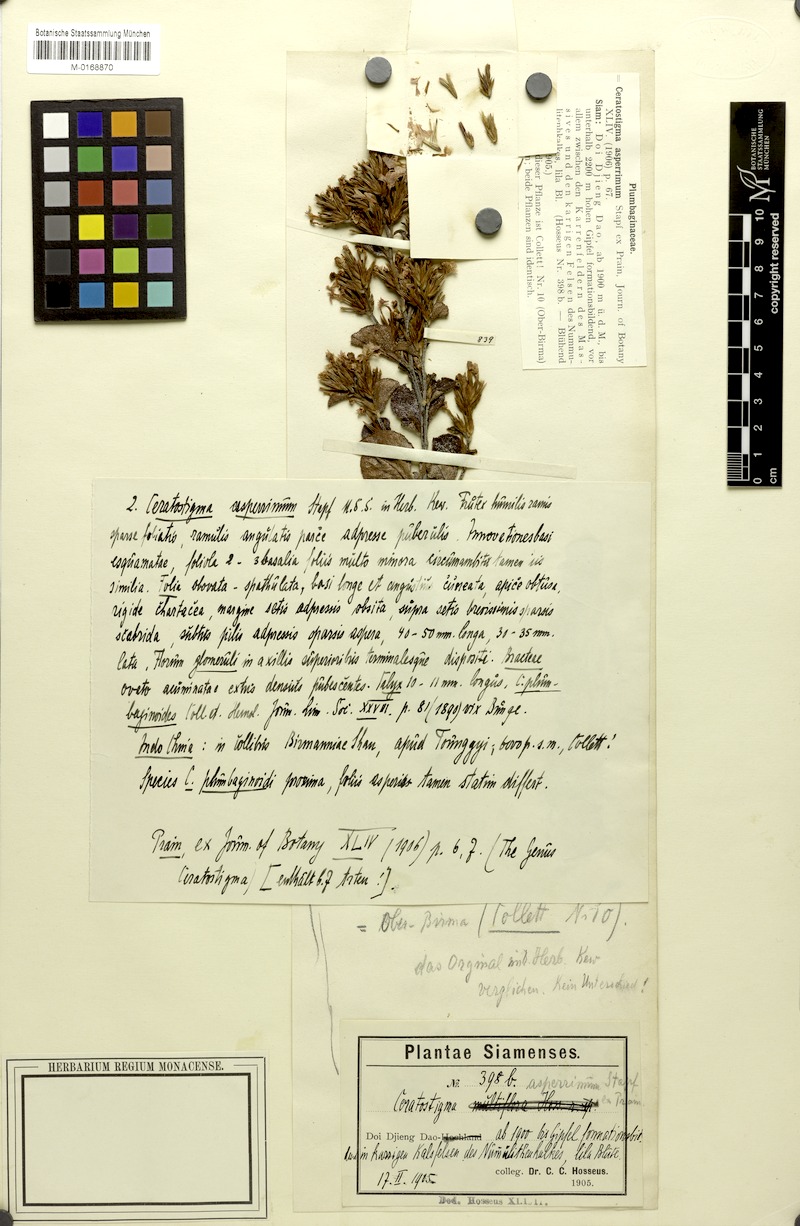 Botanische Staatssammlung München
M-0168870
Plumbaginaceae.
= Ceratostigma asperrimum Stapf ex Prain, Journ. of Botany
XLIV. (1906) p. 67.
Siam: Doi Djieng Dao, ab 1900 m ü. d. M., bis
unterhalb 2200 m hohen Gipfel formationsbildend, vor
allem zwischen den Karrenfeldern des Mas-
sives und den karrigen Felsen des Nummu-
litenkalkes, lila Bl. (Hosseus Nr. 398 b. — Blühend
905.)
dieser Pflanze ist Collett! Nr. 10 (Ober-Birma)
; beide Pflanzen sind identisch.
839
BOTANISCHE
STAATSSAMMLUNG
MÜNCHEN
0 1 2 3 4 5 6 7 8 9 10
cm
copyright reserved
2. Ceratostigma asperrimum Stapf M.S.S. in Herb. Kew. Frutex humilis ramis
sparse foliatis, ramulis angulatis parce adpresse puberulis. Innovationes basi
esquamatae, foliola 2-3 basalia foliis multo minora circumambitu tamen iis
similia. Folia obovata-spathulata, basi longe et angustius cuneata, apice obtusa,
rigide chartacea, margine setis adpressis obsita, supra setis brevissimis sparsis
scabrida, subtus pilis adpressis sparsis aspera, 40-50 mm. longa, 30-35 mm.
lata, Florum glomeruli in axillis superioribus terminalesque dispositi. Bracteae
ovato acuminatae extus densius pubescentes. Calyx 10-11 mm. longus, C. plum-
baginoides Coll. et. Hemsl. Journ. Lin. Soc. XXVIII. p. 81 (1890) vix Bunge.
Indo China: in collibus Birmanniae Shan, apud Tounggyi; 6000 p.s.m., Collett!
Species C. plumbaginoidi proxima, foliis asperis tamen statim differt.
Prain, ex Journ. of Botany XLIV (1906) p. 6, 7. (The Genus
Ceratostigma) [enthält 6.7 Arten!].
= Ober-Birma (Collett No 10).
das Orginal mit Herb. Kew
verglichen. Kein Unterschied!
Plantae Siamenses.
№ 398 b. asperrimum Stapf
Ceratostigma multiflora Hoss. n. sp. ex Prain
Doi Djieng Dao-Hochland ab 1900 bis Gipfel formationsbil.
in karrigen Kalkfelsen des Numulitenkalkes, lila Blüte.
17. II. 1905 colleg. Dr. C. C. Hosseus.
1905.
Ded. Hosseus XI.1.11.
HERBARIUM REGIUM MONACENSE.